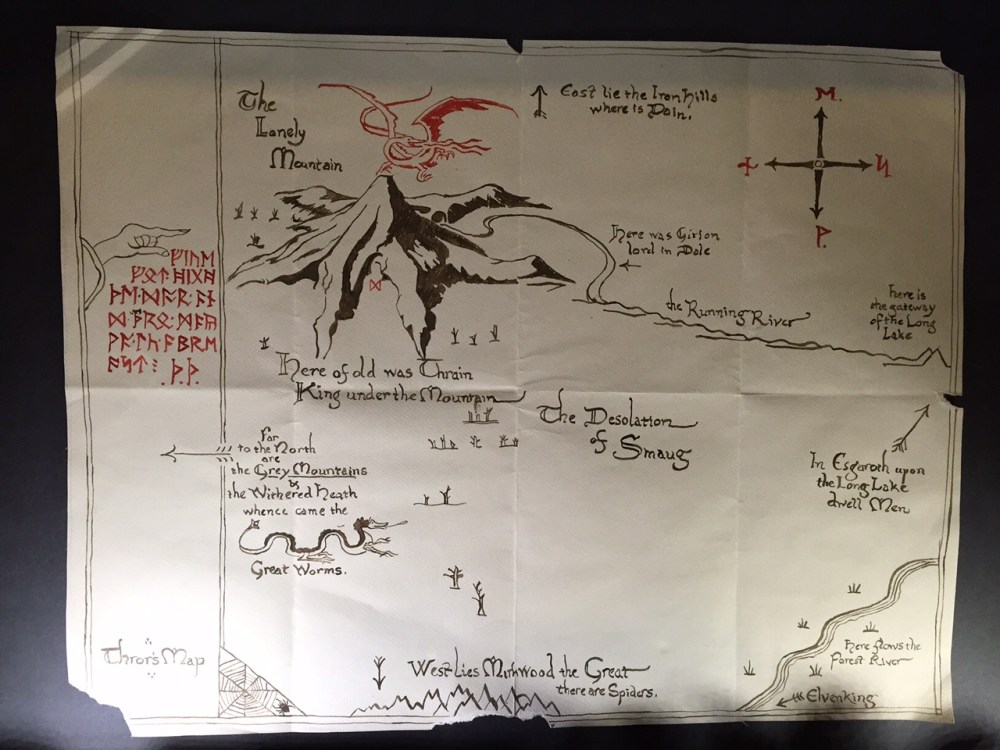 The
Lonely
Mountain
East lie the Iron Hills
where is Dain.
Here was Girion
lord in Dale
the Running River
here is
the gateway
of the Long
Lake
ᚠᛁᚢᛖ
ᛞ
.ᚦ.ᚦ.
Here of old was Thrain
King under the Mountain
The Desolation
of Smaug
Far
to the North
are
the Grey Mountains
&
the Withered Heath
whence came the
Great Worms.
In Esgaroth upon
the Long Lake
dwell Men
here flows the
Forest River
Elvenking
Thror's Map
West lies Mirkwood the Great
there are Spiders.